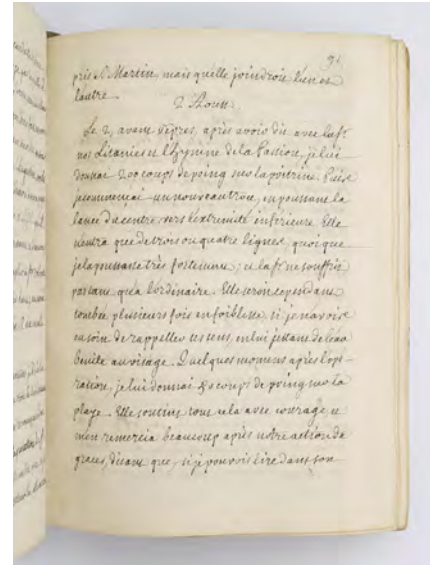 91.
prié S. Martin, mais qu'elle joindroit l'un et
l'autre.
2 Aoust.
Le 2, avant vêpres, après avoir dit avec la sr
nos Litanies et l'hymne de la Passion, je lui
donnai 200 coups de poing sur la poitrine. Puis
je commençai un nouveau trou, en poussant la
lance du centre vers l'extremité inférieure. Elle
n'entra que de trois ou quatre lignes, quoique
je la poussasse très fortement; et la sr ne souffrit
pas tant qu'à l'ordinaire. Elle seroit cependant
tombée plusieurs fois en foiblesse, si je n'avois
eu soin de rappeller ses sens, en lui jettant de l'eau
benite au visage. Quelques momens après l'opé-
ration, je lui donnai 80 coups de poing sur la
playe. Elle soutint tout cela avec courage et
m'en remercia beaucoup après notre action de
graces, disant que, si je pouvois lire dans son